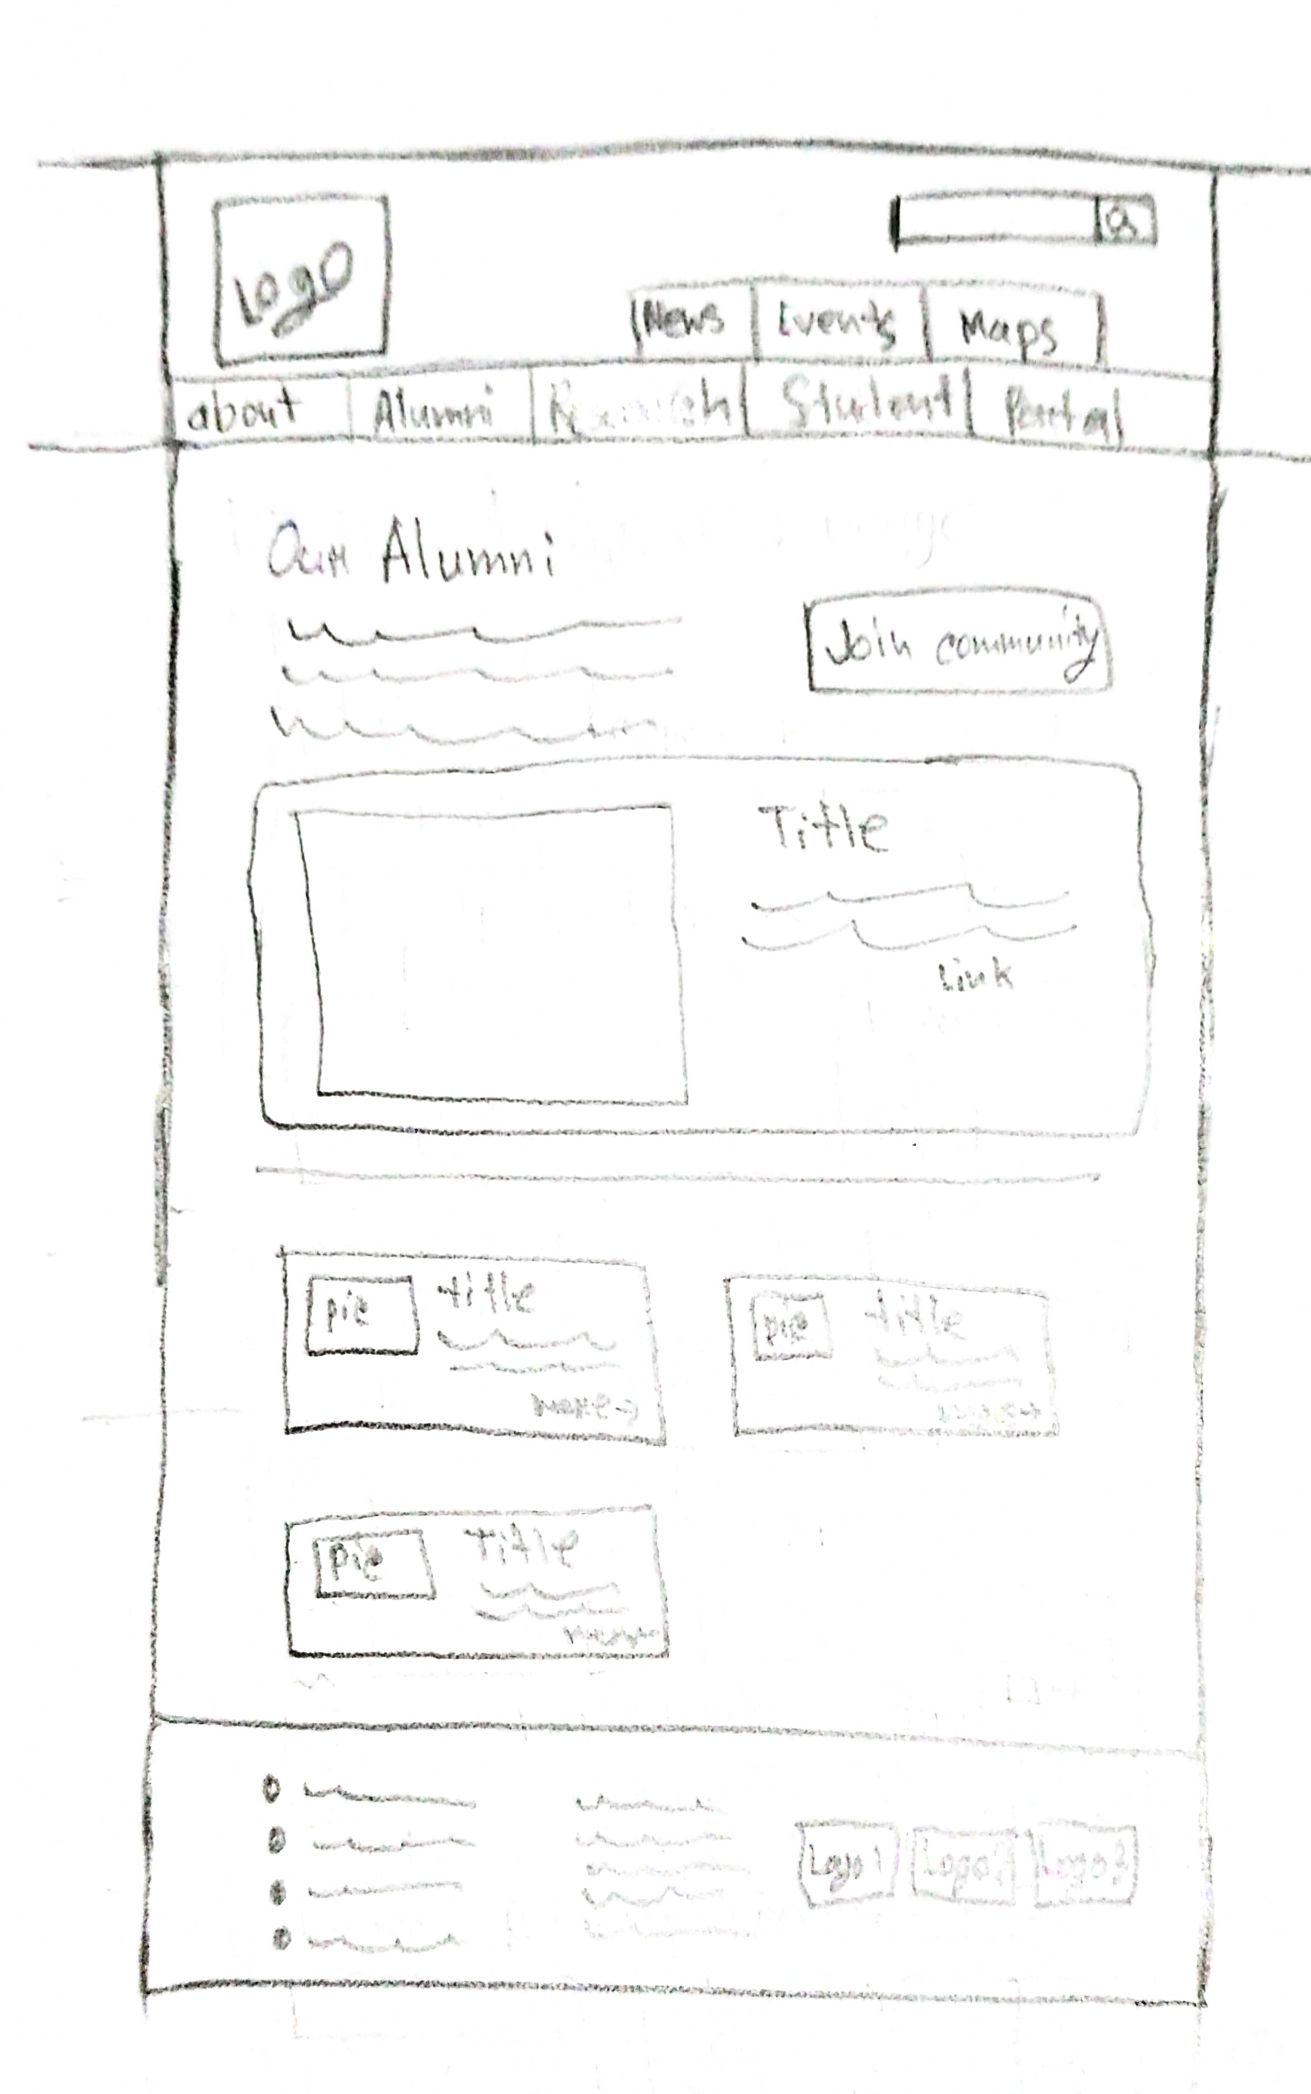 Logo
News Events Maps
about Alumni Research Student Portal
Our Alumni
Join community
Title
Link
pic title
more→
pic title
more→
pic Title
more→
Logo1 Logo2 Logo3